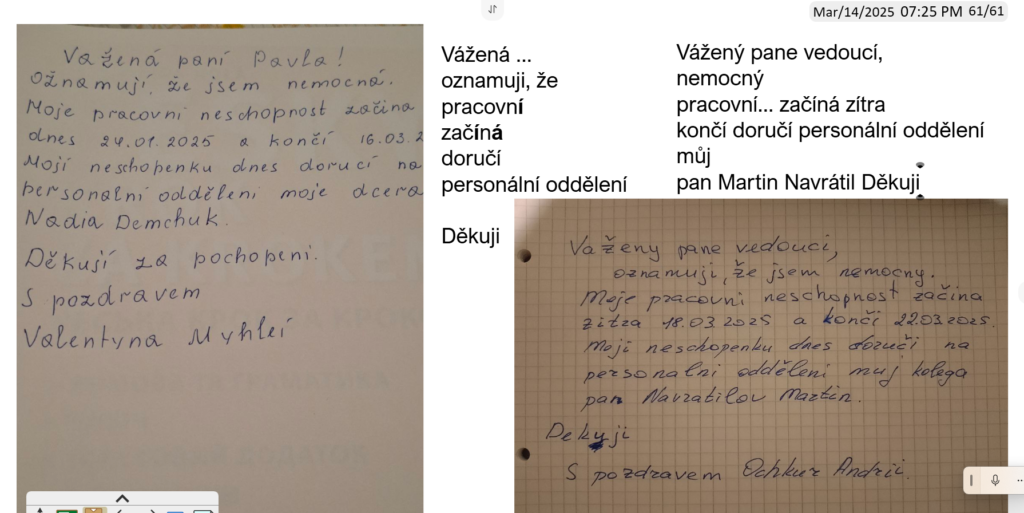 Mar/14/2025 07:25 PM 61/61
Važená paní Pavla!
Oznamují, že jsem nemocná.
Moje pracovní neschopnost začína
dnes 24.01.2025 a končí 16.03.2
Mojí neschopenku dnes dorucí na
personalní oddělení moje dcera
Nadia Demchuk.
Děkují za pochopeni.
S pozdravem
Valentyna Myhleí
Vážená ...
oznamuji, že
pracovní
začíná
doručí
personální oddělení
Děkuji
Vážený pane vedoucí,
nemocný
pracovní... začíná zítra
končí doručí personální oddělení
můj
pan Martin Navrátil Děkuji
Važeny pane vedouci,
oznamuji, že jsem nemocny.
Moje pracovni neschopnost začina
zitza 18.03.2025 a končí 22.03.2025.
Moji neschopenku dnes doruči na
personalni oddělení muj kolega
pan Navratilov Martin.
Dekuji
S pozdravem Ochkur Andrii.